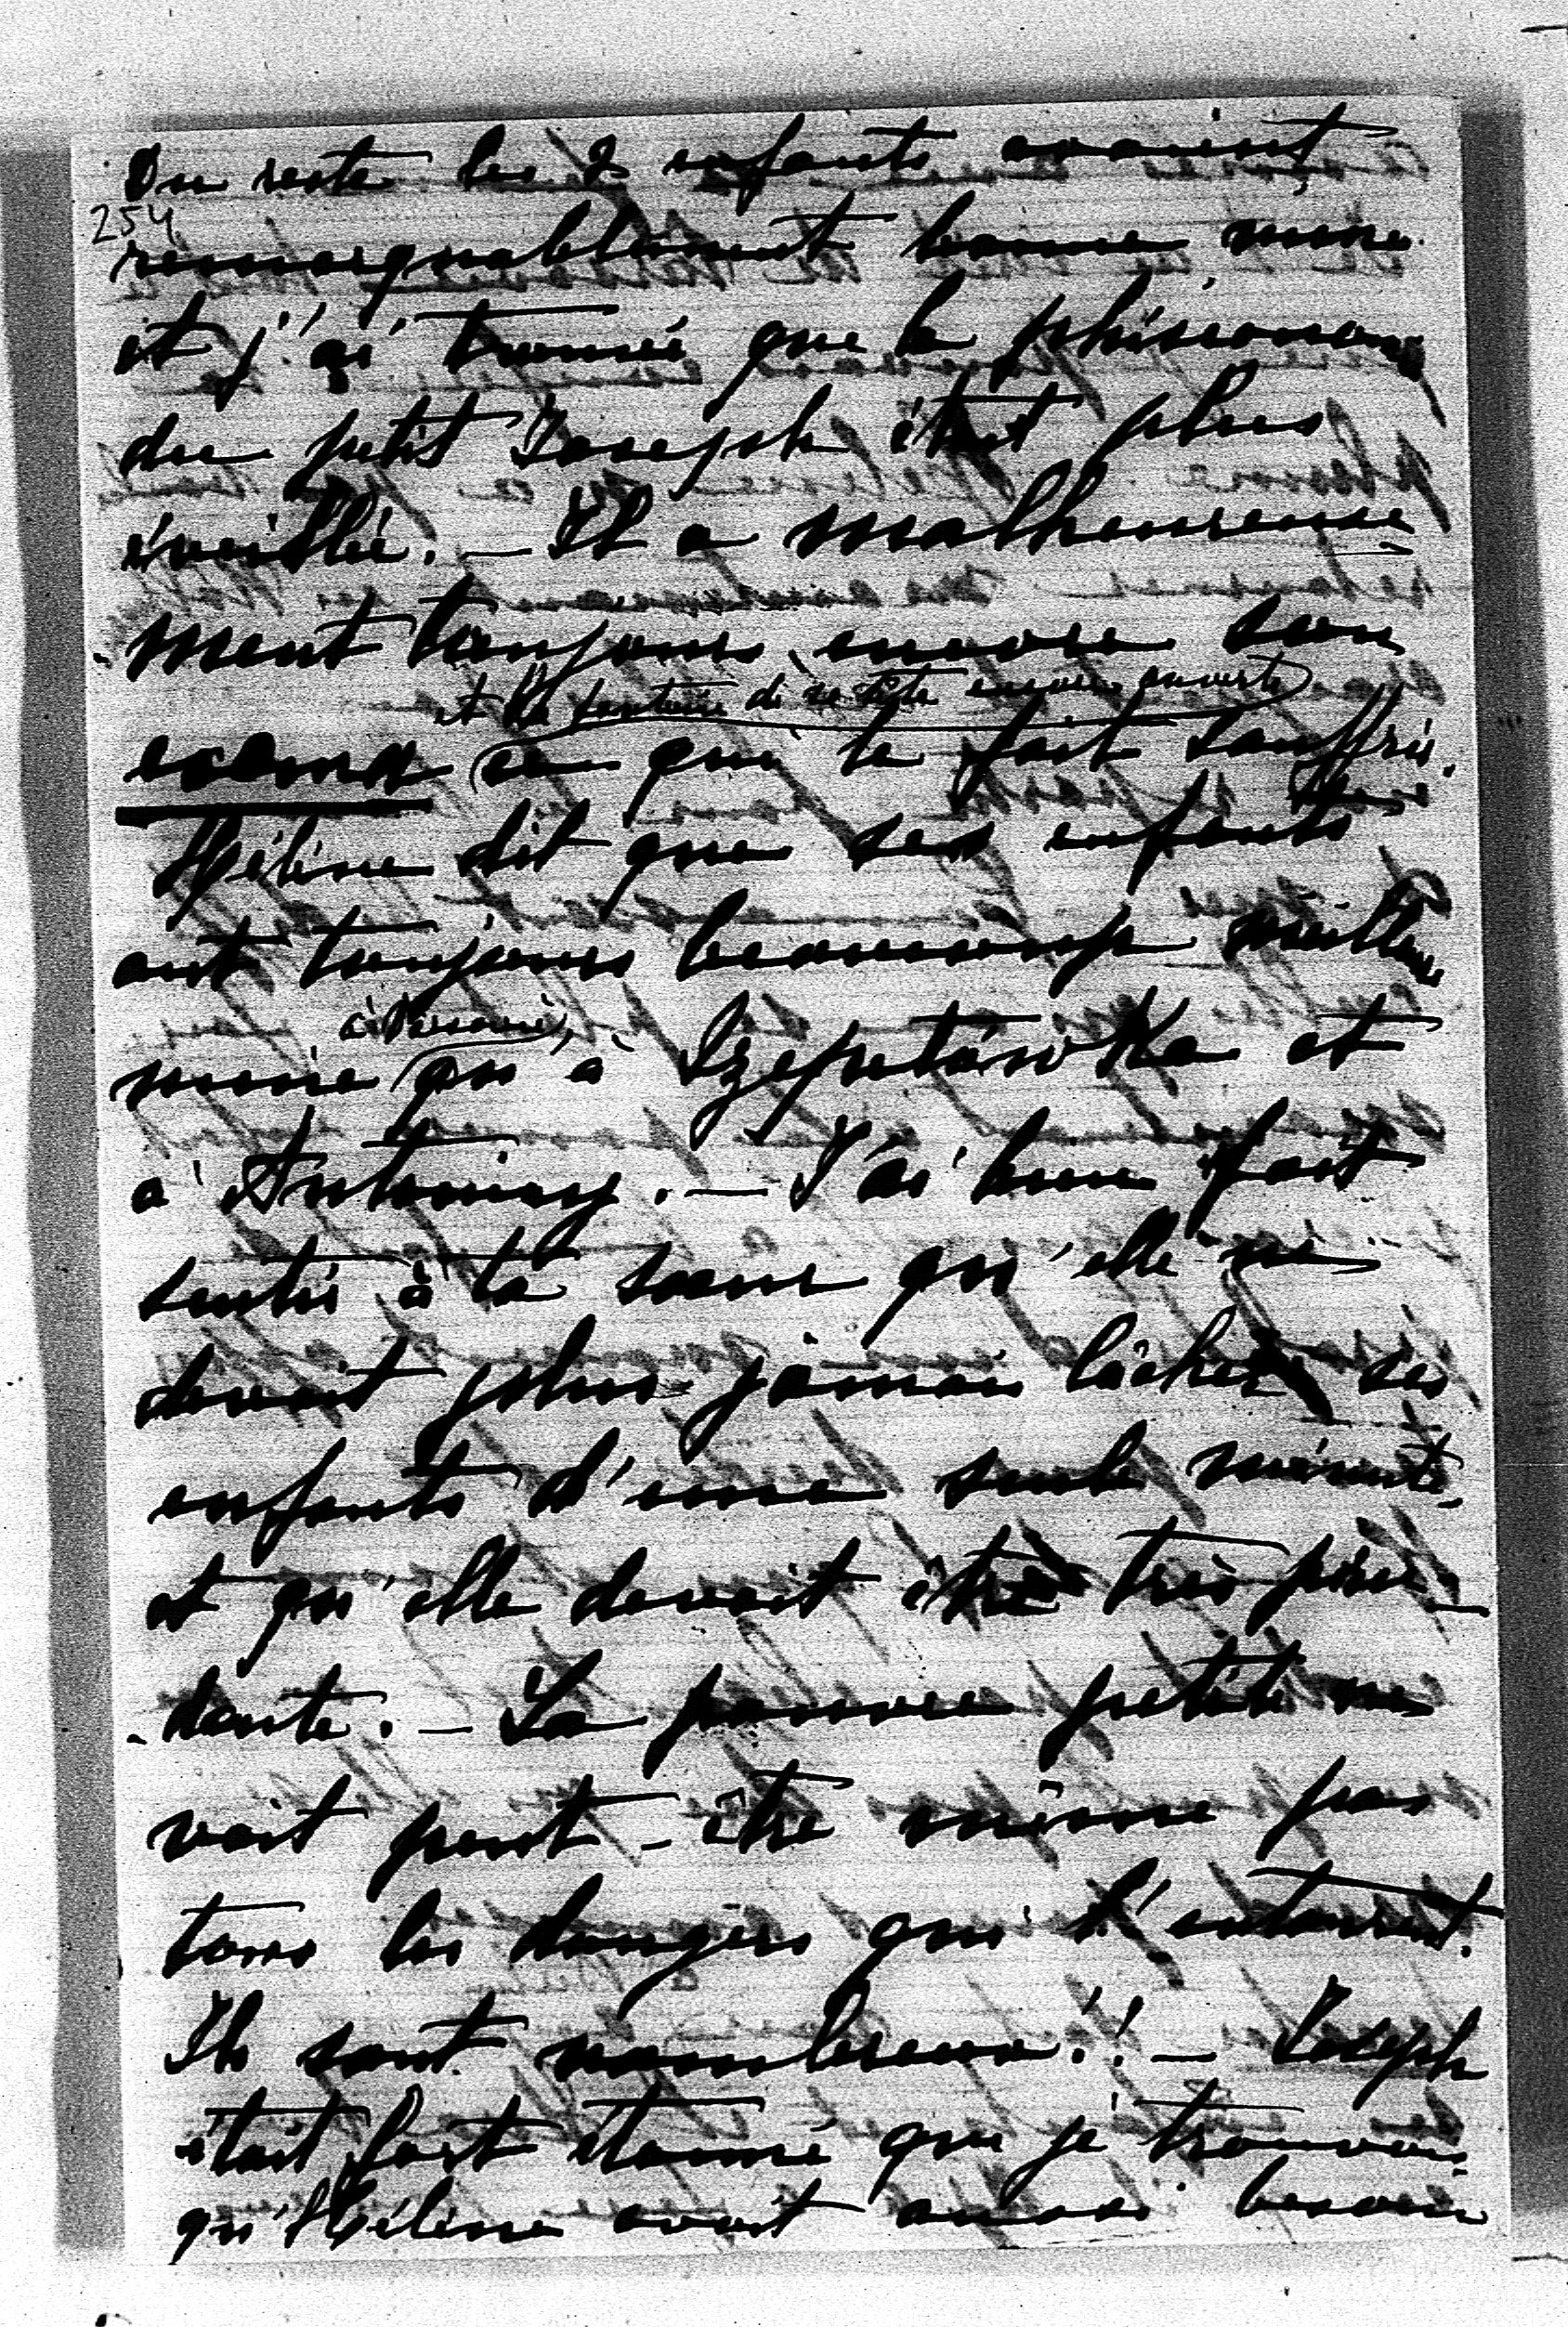 Du reste les 2 enfants avaient
254
remarquablement bonne mine
et j'ai trouvé que la phisionom
du petit Joseph était plus
éveillé. — Il a malheureuse
ment toujours encore son
et la fonteine de sa tête encore ouverte
exema ce qui le fait souffrir.
Hélène dit que ses enfants
ont toujours beaucoup meilleure
à Varsovie,
mine qu'à Szepetówka et
à Antoniny. — J'ai bien fait
sentir à ta soeur qu'elle ne
devait plus jamais lâcher ses
enfants d'une seule minute,
et qu'elle devait être très pru-
dante. — La pauvre petite ne
voit peut-être même pas
tous les dangers qui l'entourent.
Ils sont nombreux!! — Joseph
était fort étonné que je trouvais
qu'Hélène avait aussi besoin